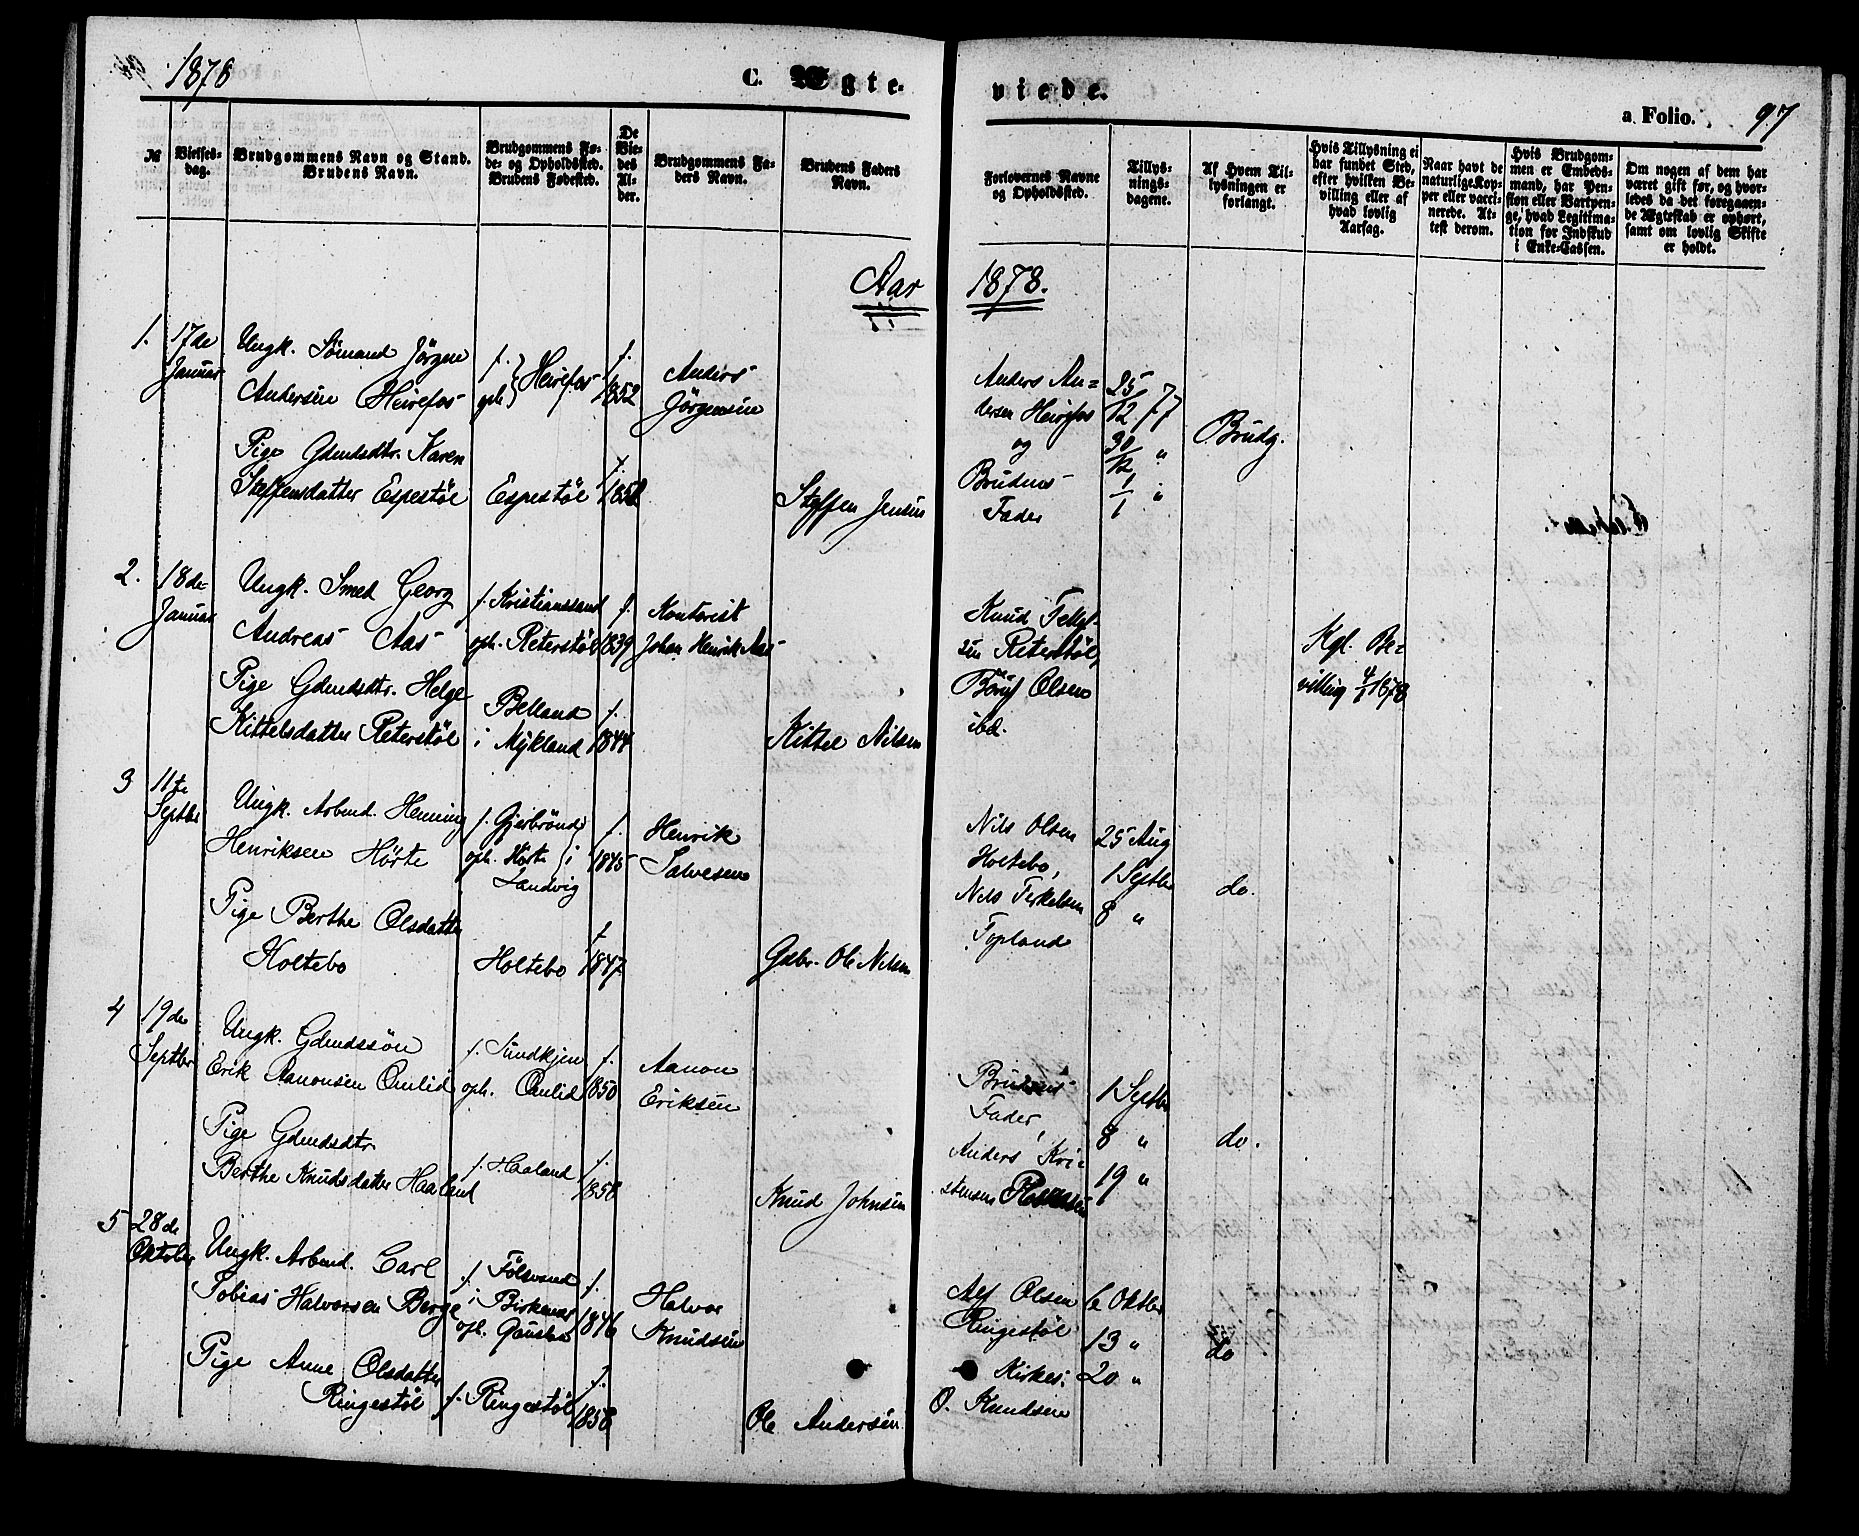 1878
C. Ægte-
viede.
a Folio. 97
№
Vielses-
dag.
Brudgommens Navn og Stand.
Brudens Navn.
Brudgommens Fø-
de- og Opholdssted.
Brudens Fødested.
De
Vie-
des
Al-
der.
Brudgommens Fa-
ders Navn.
Brudens Faders
Navn.
Forlovernes Navne
og Opholdssted.
Tillys-
nings-
dagene.
Af Hvem Til-
lysningen er
forlangt.
Hvis Tillysning ei
har fundet Sted,
efter hvilken Be-
villing eller af
hvad lovlig
Aarsag.
Naar havt de
naturlige Kop-
per eller vacci-
nerede. At-
test derom.
Hvis Brudgom-
men er Embeds-
mand, har Pen-
sion eller Vartpen-
ge, hvad Legitima-
tion for Indskud
i Enke-Cassen.
Om nogen af dem har
været gift før, og hvor-
ledes da det foregaaen-
de Ægteskab er ophørt,
samt om lovlig Skifte
er holdt.
Aar 1878.
1. 17de
Januar
Ungk. Sømand Jörgen
Andersen Heirefos
f.
oph. } Heirefos
f.
1852
Anders
Jörgensen
Pige Gdmdsdtr. Karen
Steffensdatter Espestöl
Espestöl
f.
Steffen Jensen
Anders An=
dersen Heirefos
og
Brudens
Fader
25/12 77
30/12 "
1/1 "
Brudg.
2. 18de
Januar
Ungk. Smed Georg
Andreas Aas
f. Kristianssand
oph. Reterstöl
f.
1839
Kontorist
Johan Henrik Aas
Pige Gdmdsdtr. Helge
Kittelsdatter Reterstöl
Belland
i Mykland
f.
1844
Kittel Nilsen
Knud
sen Reterstöl,
Olsen
ibd.
Kgl. Be=
villing 4/1 1878
3 11te
Septbr
Ungk. Arbmd. Henning
Henriksen Hörte
f. Gjerbrönd
oph. Hörte } i
Landvig
f.
1845
Henrik
Salvesen
Pige Berthe Olsdatter
Holtebo
Holtebo
f.
1847
Gdbr. Ole Nilsen
Nils Olsen
Holtebo,
Nils Terkelsen
Topland
25 Aug
1 Septbr
8 "
do.
4 19de
Septbr
Ungk. Gdmdssön
Erik Aanonsen Omlid
f. Sundkjen
oph. Omlid
f.
1850
Aanon
Eriksen
Pige Gdmdsdtr
Berthe Knudsdatter Haaland
f. Haaland
f.
1858
Knud Johnsen
Brudens
Fader,
Anders Kri=
stensen
1 Septbr
8 "
19 "
do.
5 28de
Oktober
Ungk. Arbmd. Carl
Tobias Halvorsen Berge
f. Fölsvand
i Birkenæs
oph.
f.
1846
Halvor
Knudsen
Pige Anne Olsdatter
Ringestöl
f. Ringestöl
f.
1858
Ole Andersen
Alf Olsen
Ringestöl
Kirkes:
O. Knudsen
6 Oktbr
13 "
20 "
do